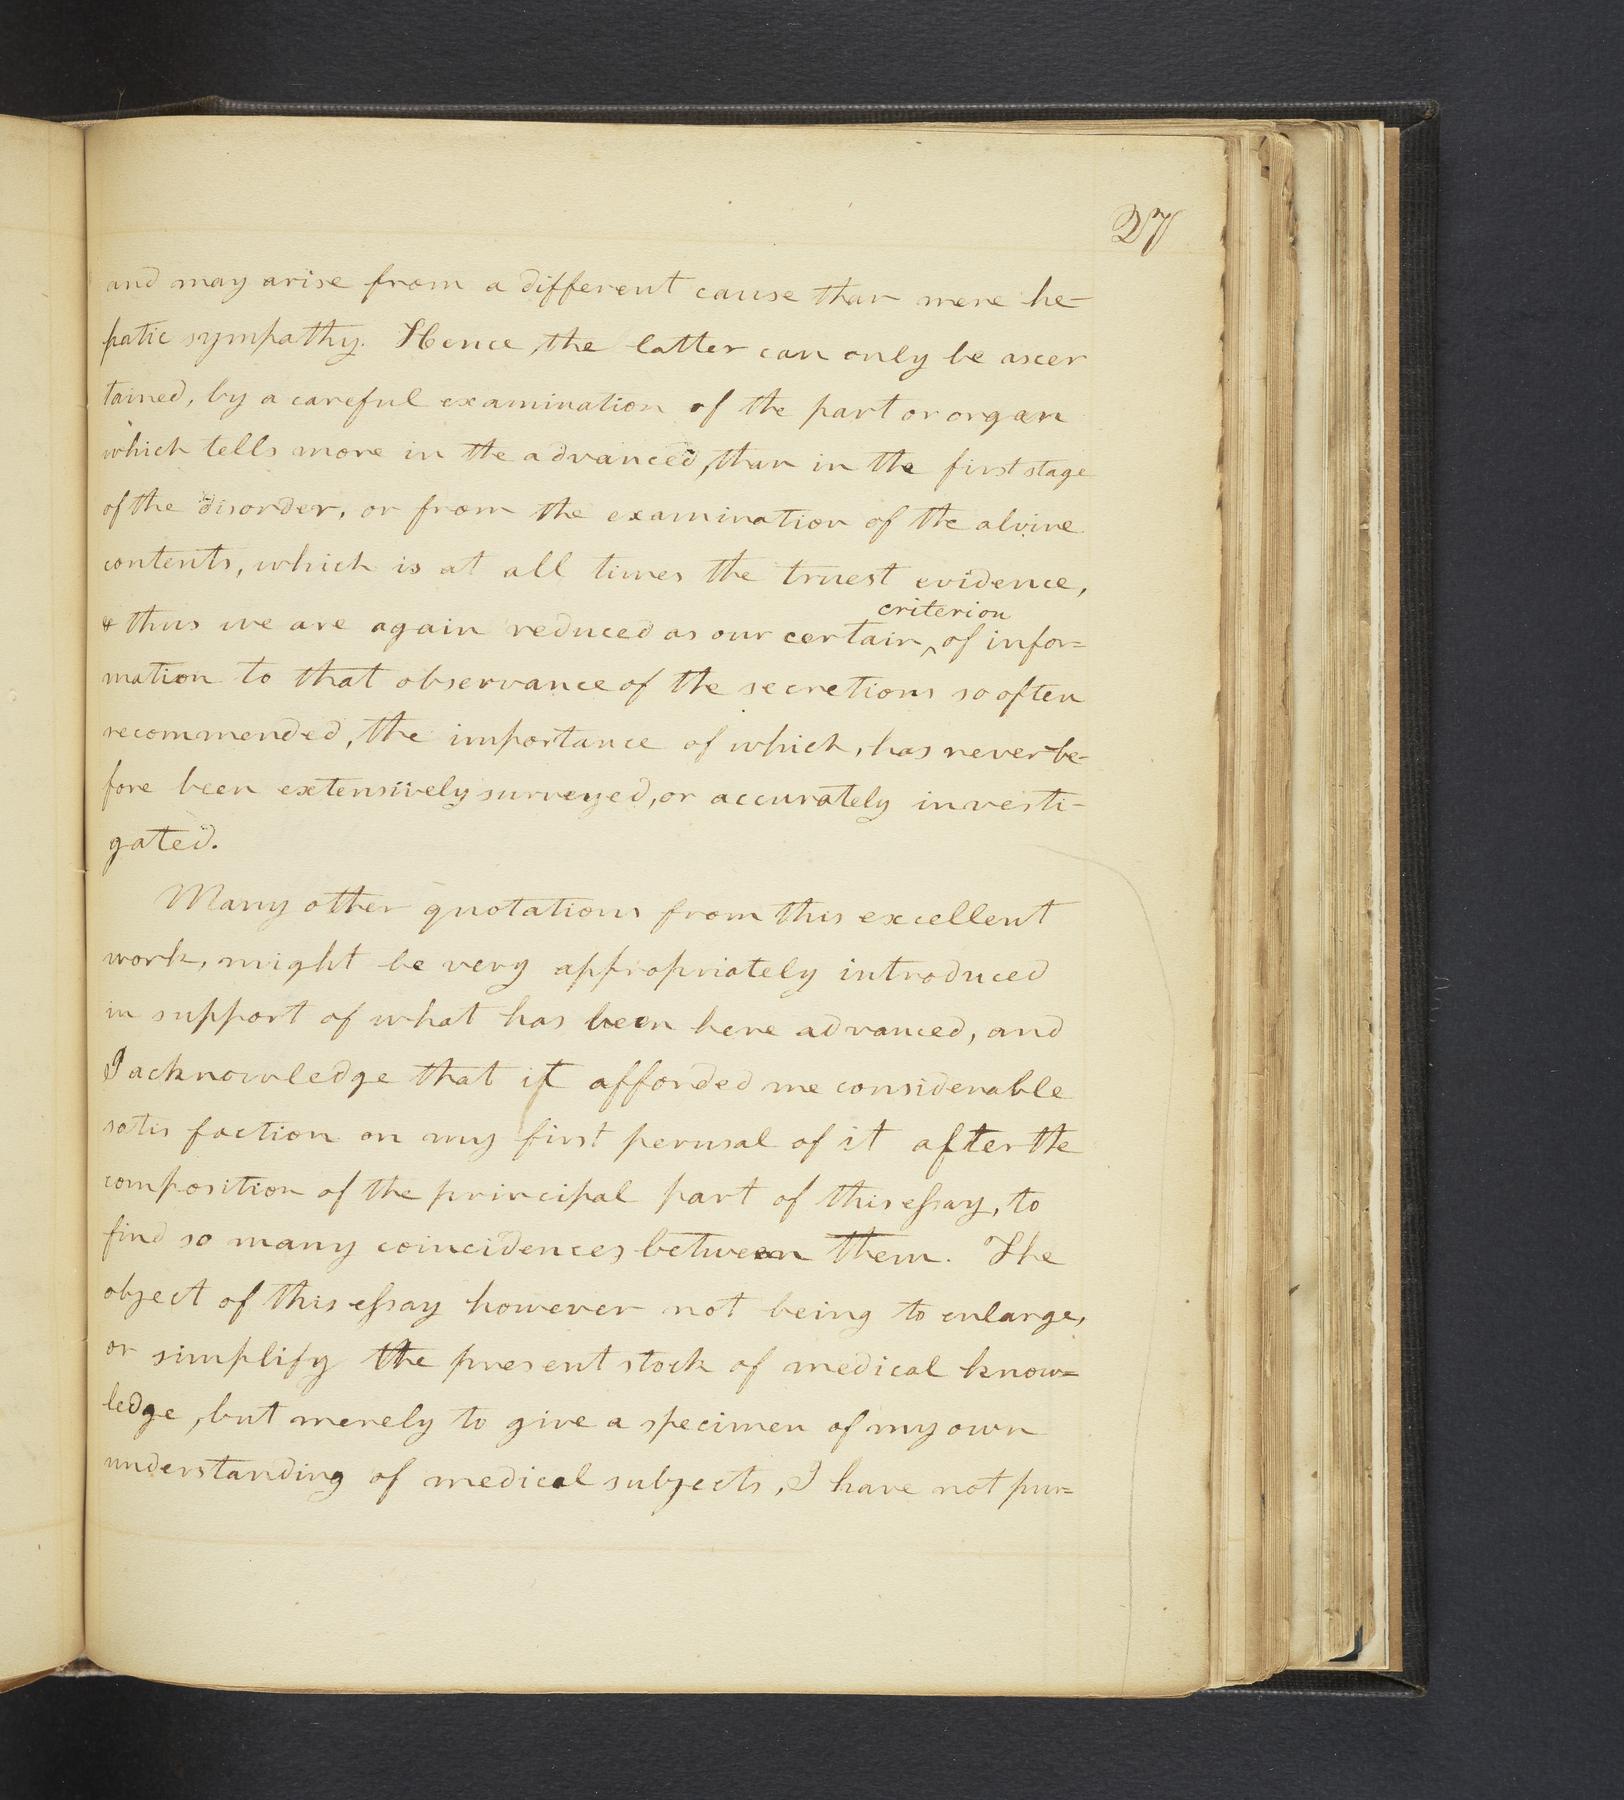 27
and may arise from a different cause than mere he-
patic sympathy. Hence, the latter can only be ascer
tained, by a careful examination of the part or organ
which tells more in the advanced, than in the first stage
of the disorder, or from the examination of the alvine
contents, which is at all times the truest evidence,
criterion
& thus we are again reduced as our certain ‸ of infor=
mation to that observance of the secretions so often
recommended, the importance of which, has never be-
fore been extensively surveyed, or accurately investi-
gated.
Many other quotations from this excellent
work, might be very appropriately introduced
in support of what has been here advanced, and
I acknowledge that it afforded me considerable
satisfaction on my first perusal of it after the
composition of the principal part of this eſsay, to
find so many coincidences between them. The
object of this eſsay however not being to enlarge,
or simplify the present stock of medical know=
ledge, but merely to give a specimen of my own
understanding of medical subjects, I have not pur=